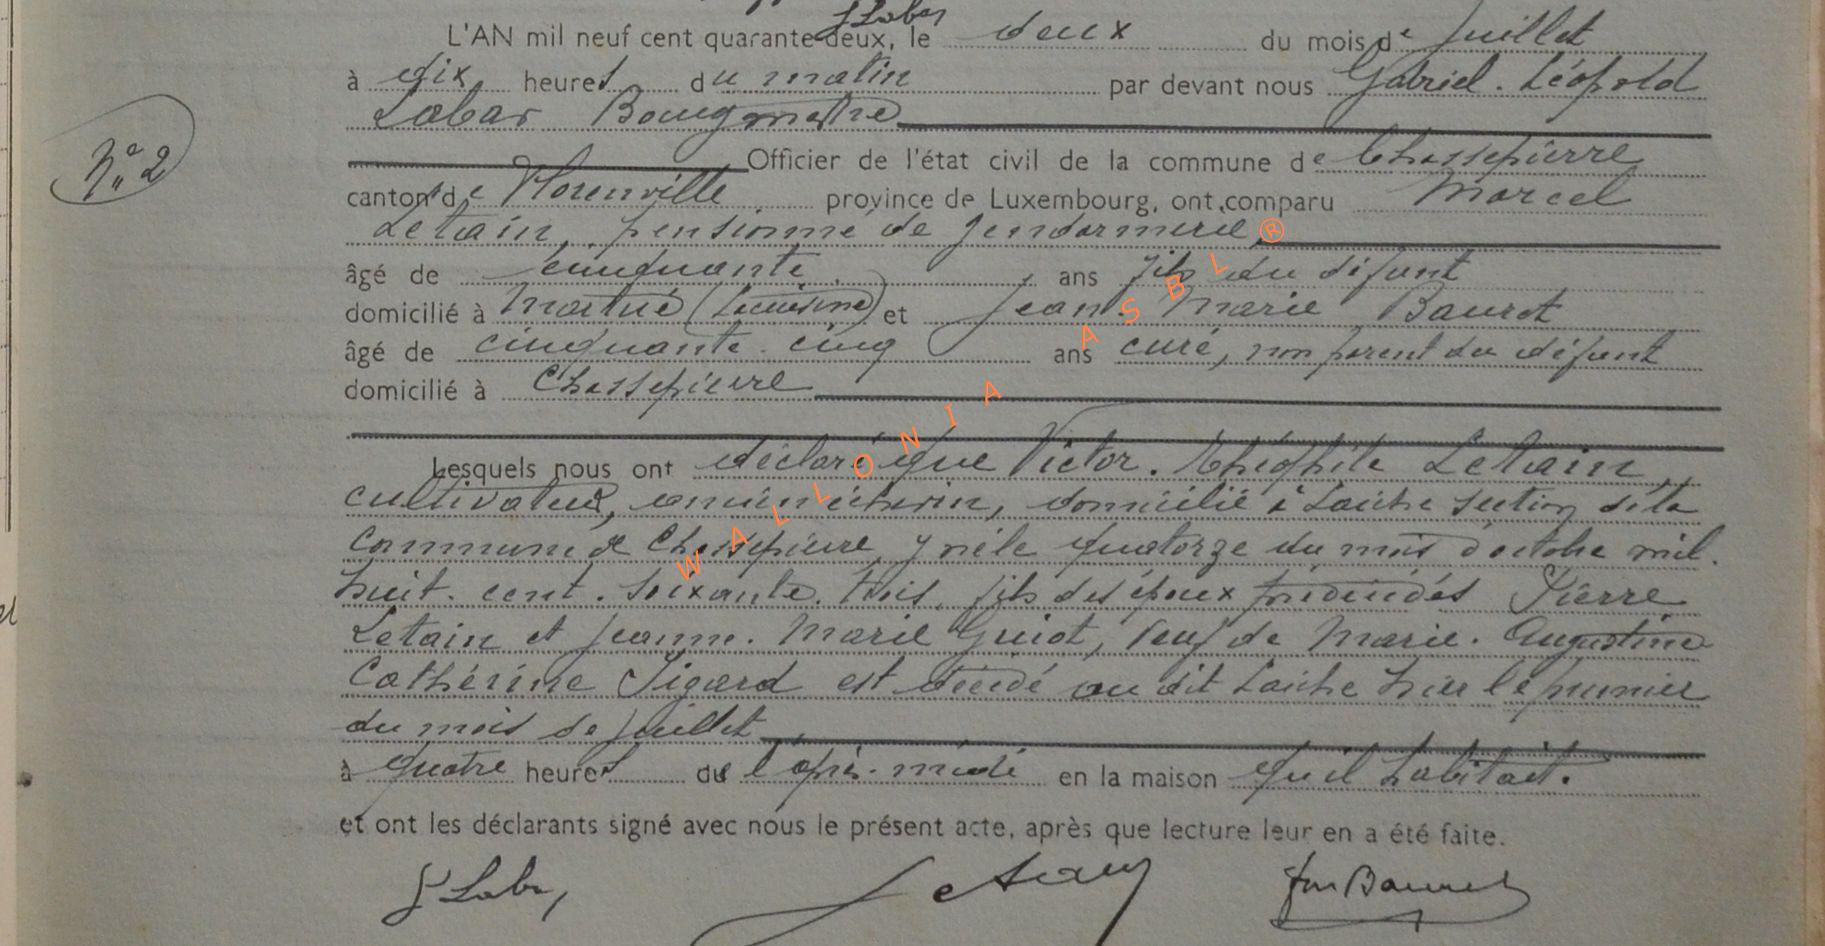 G Labar
L'AN mil neuf cent quarante-deux, le deux du mois de Juillet
à dix heures du matin par devant nous Gabriel. Léopold
Labar Bourgmestre
Officier de l'état civil de la commune de Chassepierre
N° 2
canton de Florenville province de Luxembourg, ont comparu Marcel
Letain, pensionné de gendarmerie ®
âgé de cinquante ans fils du défunt
domicilié à Martué (Lacuisine) et Jean Marie Bauret
âgé de cinquante cinq ans curé, non parent du défunt
domicilié à Chassepierre
WALLONIA ASBL
Lesquels nous ont déclaré que Victor. Théophile Letain
cultivateur, domicilié à Laiche section de la
commune de Chassepierre y né le quatorze du mois d'octobre mil.
huit. cent. soixante. trois, fils des époux prédécédés Pierre
Letain et Jeanne. Marie Guiot, veuf de Marie. Augustine
Cathérine Sigard est décédé au dit Laiche hier le premier
du mois de Juillet
à quatre heures de l'après-midi en la maison qu'il habitait.
et ont les déclarants signé avec nous le présent acte, après que lecture leur en a été faite.
G Labar Letain Jm Bauret